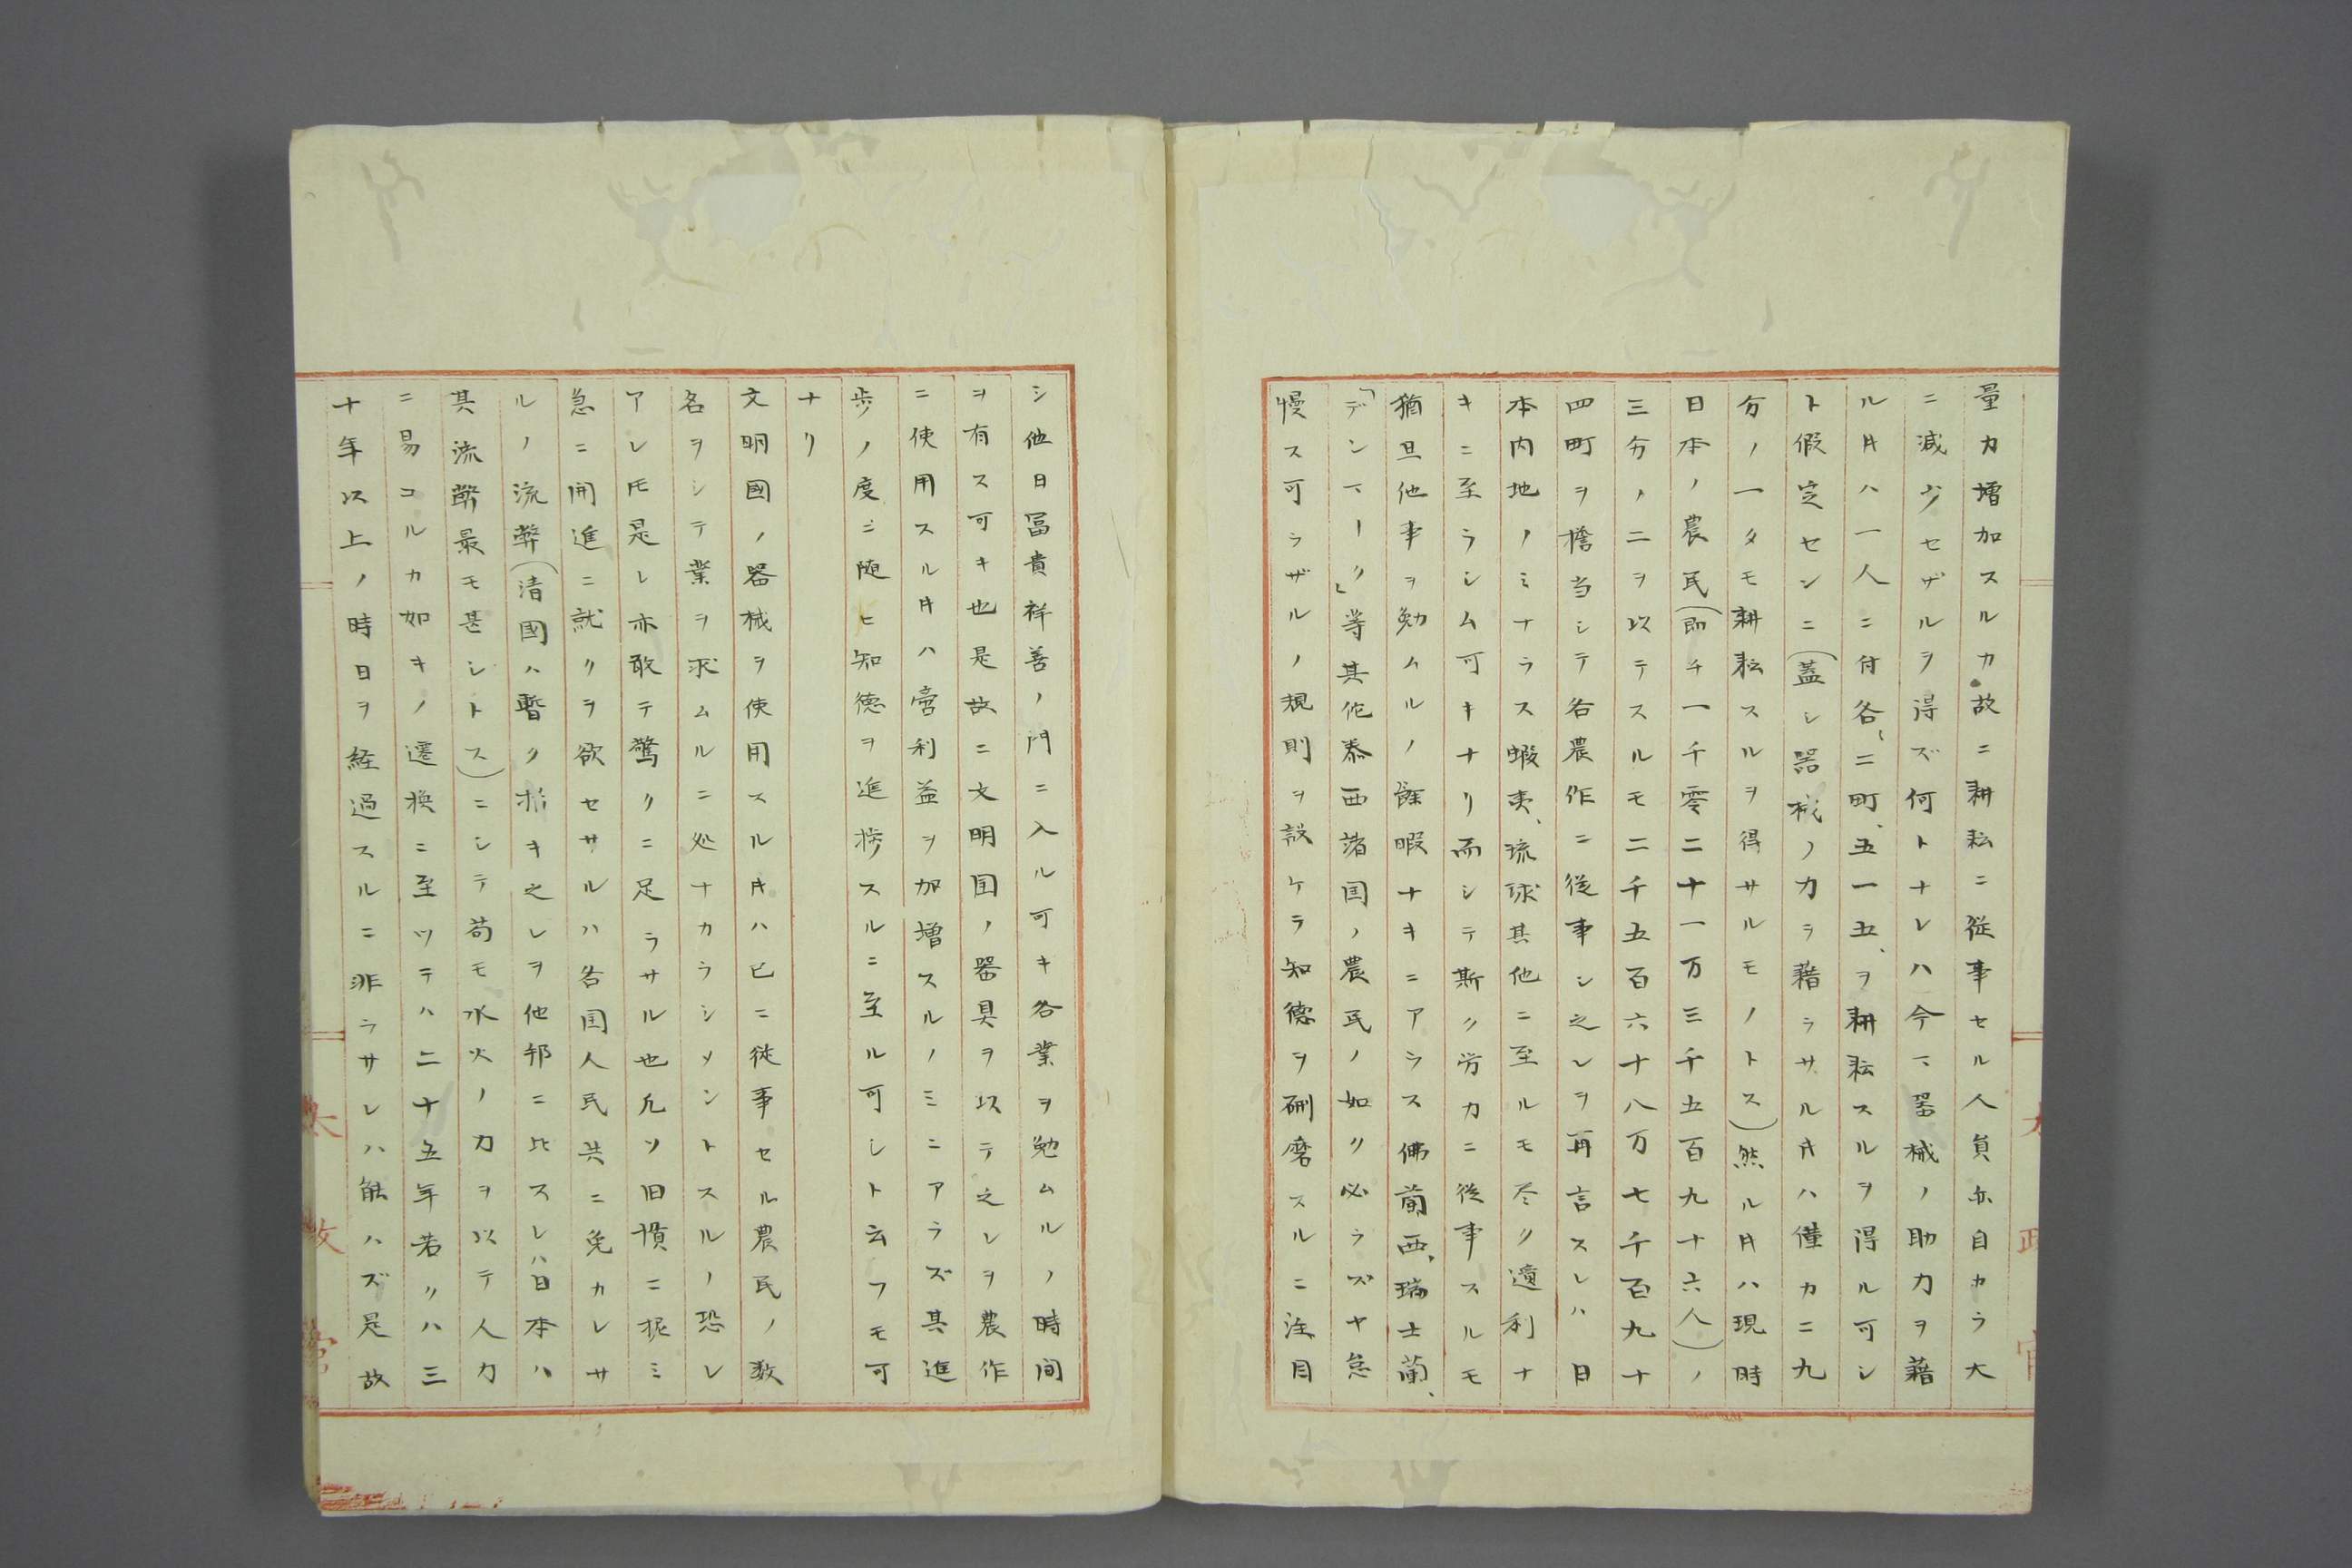 量力増加スルカ故ニ耕耘ニ従事セル人員亦自カラ大
ニ減少セザルヲ得ズ何トナレハ今マ器械ノ助力ヲ藉
ル片ハ一人ニ付各〻二町、五一五、ヲ耕耘スルヲ得ル可シ
ト假定センニ(蓋シ器械ノ力ラ藉ラサル片ハ僅カニ九
分ノ一タモ耕耘スルヲ得サルモノトス)然ル片ハ現時
日本ノ農民(即チ一千零二十一万三千五百九十六人)ノ
三分ノ二ヲ以テスルモ二千五百六十八万七千百九十
四町ヲ擔当シテ各農作ニ従事シ之レヲ再言スレハ 日
本内地ノミナラス蝦夷、琉球其他ニ至ルモ尽ク適利ナ
キニ至ラシム可キナリ而シテ斯ク労力ニ従事スルモ
猶且他事ヲ勉ムルノ餘暇ナキニアラス佛蘭西、瑞士蘭、
「デンマーク」等其他泰西諸国ノ農民ノ如ク必ラズヤ怠
慢ス可ラザルノ規則ヲ設ケラ知徳ヲ硎磨スルニ注目
太政官
シ他日冨貴祥善ノ門ニ入ル可キ各業ヲ勉ムルノ時間
ヲ有ス可キ也是故ニ文明国ノ器具ヲ以テ之レヲ農作
ニ使用スル片ハ啻利益ヲ加増スルノミニアラズ其進
歩ノ度ニ随ヒ知徳ヲ進捗スルニ至ル可シト云フモ可
ナリ
文明國ノ器械ヲ使用スル片ハ已ニ従事セル農民ノ数
名ヲシテ業ヲ求ムルニ処ナカラシメントスルノ恐レ
アレ𪜈是レ亦敢テ驚クニ足ラサル也凡ソ旧慣ニ拒ミ
急ニ開進ニ就クヲ欲セサルハ各国人民共ニ免カレサ
ルノ流弊(清國ハ暫ク措キ之レヲ他邦ニ比スレハ日本ハ
其流弊最モ甚シトス)ニシテ苟モ水火ノ力ヲ以テ人力
ニ易コルカ如キノ遷換ニ至ツテハ二十五年若クハ三
十年以上ノ時日ヲ経過スルニ非ラサレハ能ハズ是故